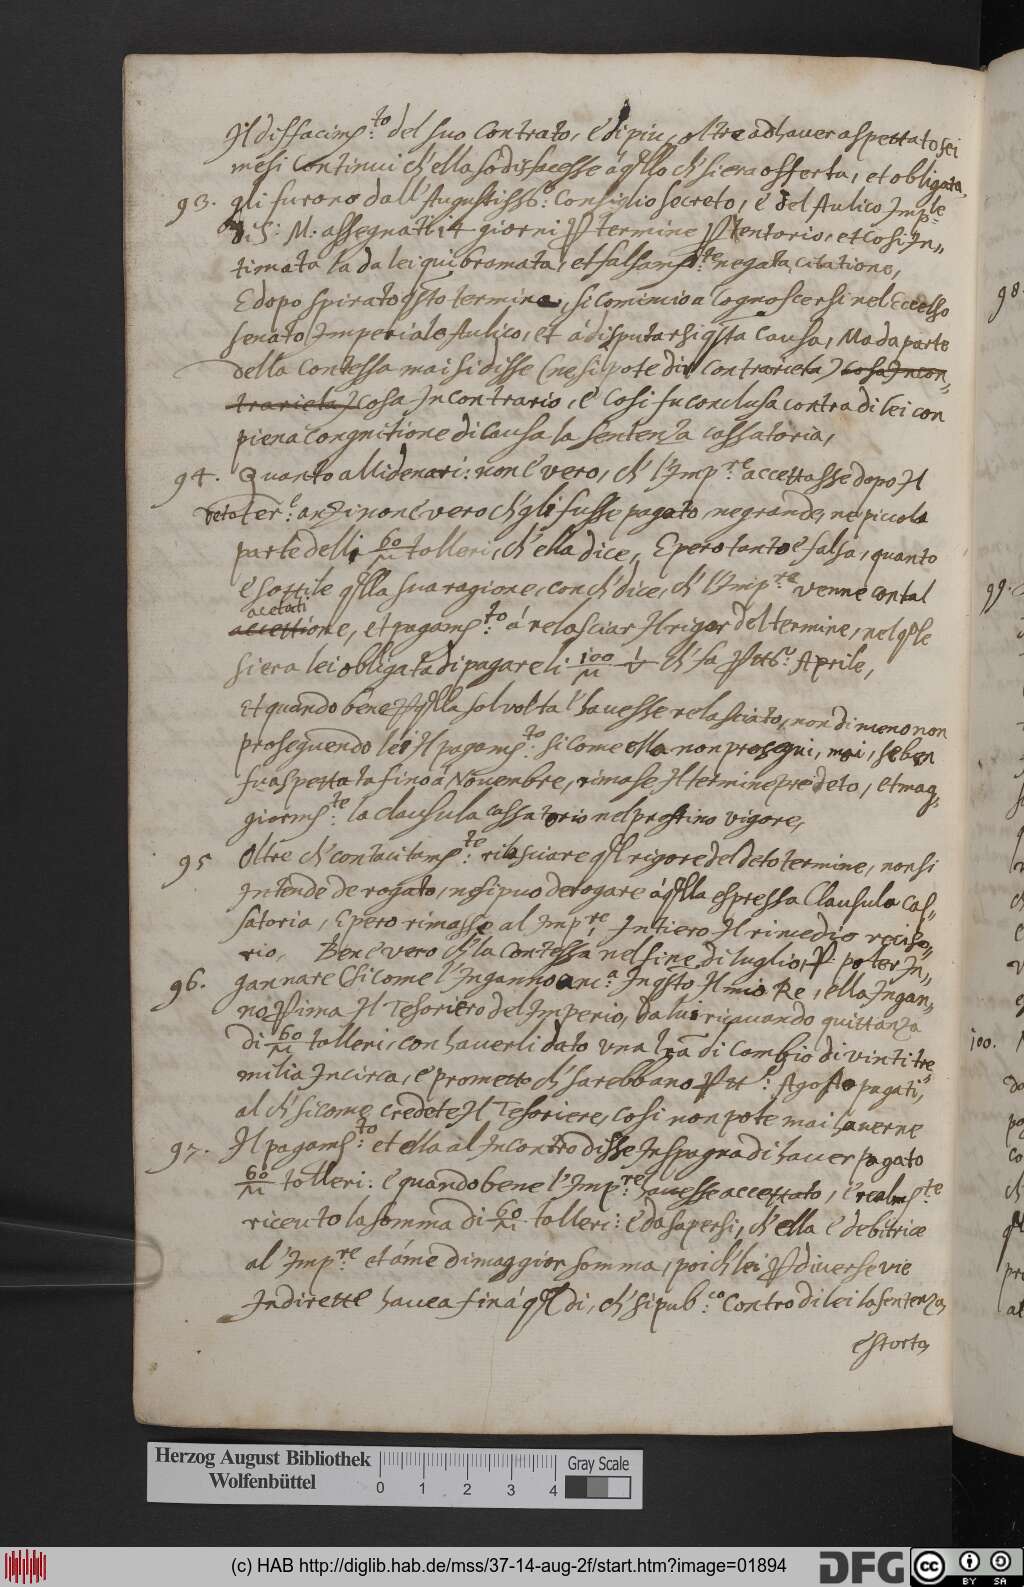 Il disfacim:to del suo Contrato, è di piu, oltre ad haver aspettato sei
mesi Continui ch' ella sodisfacesse à q'llo ch' si era offerta, et obligata,
93. gli furono dall' Augustiss:o Consiglio secreto, è del Aulico Imp:le
di S: M: assegnati 14 giorni p termine ptentorio, et cosi In„
timata la da lei qui bramata, et falsam:te negata citatione,
E dopo spirato q'sto termine, si comimio a Cognoscersi nel Eccelso
senato Imperiale Aulico, et à disputarsi q'sta Causa, Ma da parte
della Contessa mai si disse (ne si pote dir contrarieta) cosa Incon„
trarieta) Cosa In contrario, è Cosi fu conclusa contra di lei con
piena Congnitione di Causa la sentenza cassatoria,
94. Quanto alli denari: non è vero, ch' l'Imp:re accettasse dopo Il
deto ter:e anzi non è vero ch' gli fusse pagato, ne grande, ne piccola
parte delli 60/M talleri, ch' ella dice, E pero tanto è falsa, quanto
è sottile q'lla sua ragione, con ch' dice, ch' l'Imp:re venne con tal
acetati
accettione, et pagam:to à relasciar Il rigor del termine, nel q'le
si era lei obligata di pagare li 100/M ch' fa p tt:o Aprile,
Et quando bene p q'lla sol volta l'havesse relasciato, non di meno non
proseguendo lei Il pagam:to si come ella non prosegui, mai, se ben
fu aspettata fino à Novembre, rimase Il termine predeto, et mag„
giorm:te la clausula cassatorio nel prestino vigore,
95 Oltre ch' con tacitam:te rilasciare q'l rigore del deto termine, non si
Intende derogato, ne si puo derogare à q'lla espressa Clausula Cas„
satoria, E pero rimasse al Imp:re Intiero Il rimedio reciso„
rio, Ben è vero ch' la Contessa nel fine di luglio, p poter In„
96. gannare (si come l'Inganno anc:a In q'sto Il mio Re, ella Ingan„
no pima Il Tesoriero del Imperio, da lui ricavando quittanza
di 60/M talleri, con haverli dato una lra di Cambio di vinti tre
milia In circa, è promette ch' sarebbano p tt:o Agosto pagati,
al ch' si come credete Il Tesoriere, Cosi non pote mai haverne
97. Il pagam:to et ella al Incontro disse In spagna di haver pagato
60/M talleri: è quando bene l'Imp:re havesse accettato, è realm:te
riceuto la somma di 60/M talleri: è da sapersi, ch' ella è debitrice
al l'Imp:re et à me di maggior somma, poich' lei p diverse vie
Indirette havea fin à q'l di, ch' si pub:co Contro di lei la sentenza,
estorta,
98.
99.
100.
Herzog August Bibliothek
Wolfenbüttel
0 1 2 3 4
Gray Scale
(c) HAB http://diglib.hab.de/mss/37-14-aug-2f/start.htm?image=01894
DFG
cc BY SA